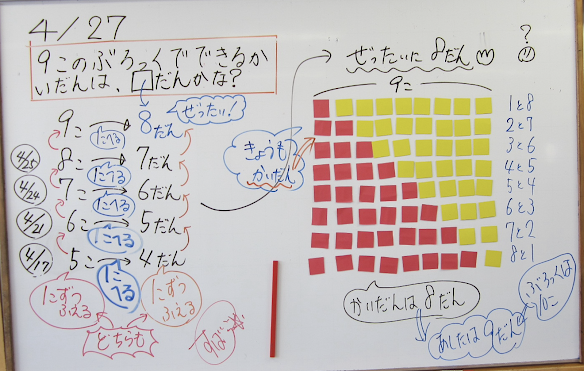 4/27
9このぶろっくでできるか
いだんは、□だんかな?
ぜったい!
9こ → 8だん
1こへる
4/25 8こ → 7だん
1こへる
4/24 7こ → 6だん
1こへる
4/21 6こ → 5だん
1こへる
4/17 5こ → 4だん
1こ
へる
1こずつ
ふえる
1こずつ
ふえる
どちらも
きょうも
かいだん
ぜったいに 8だん
?
9こ
1と8
2と7
3と6
4と5
5と4
6と3
7と2
8と1
かいだんは 8だん
あしたは 9だん
ぶろっくは
10こ